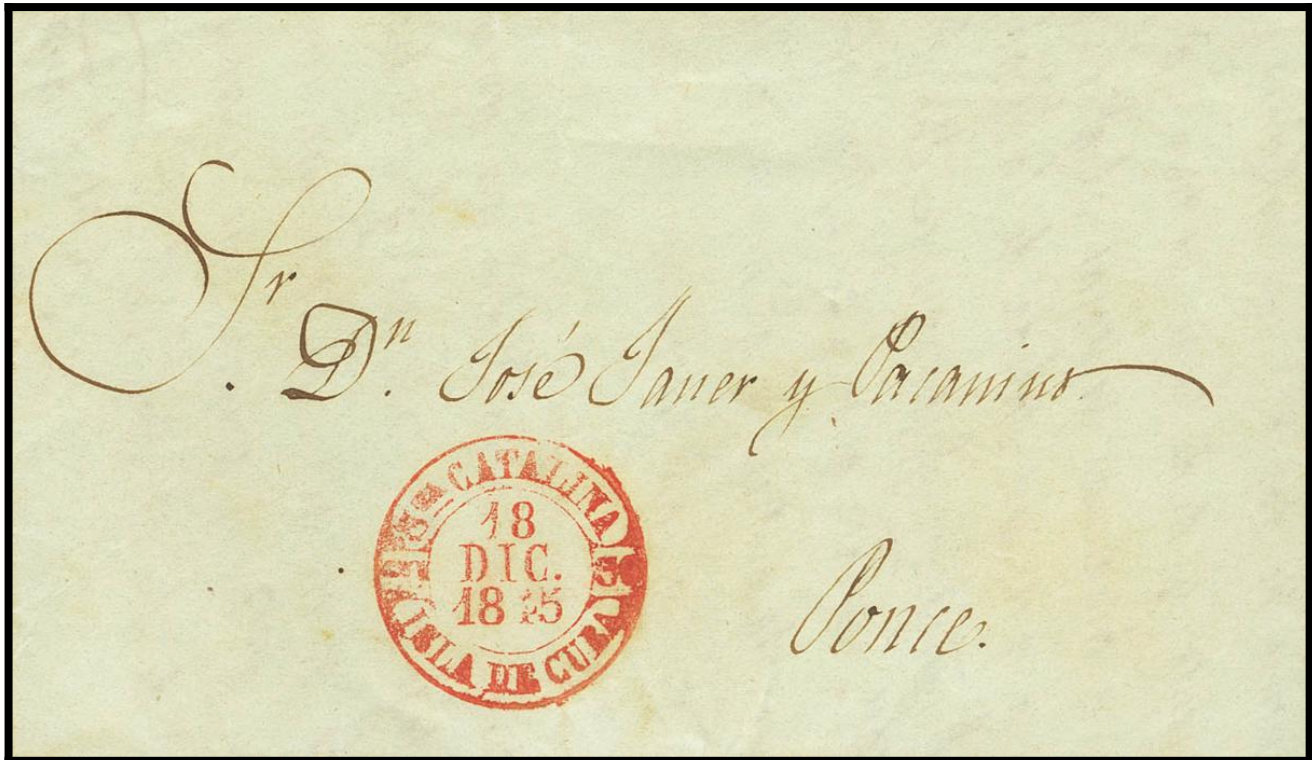 Sr.
Dn. José Janer y Pacanins
Sta. CATALINA
18
DIC.
1845
ISLA DE CUBA
Ponce.